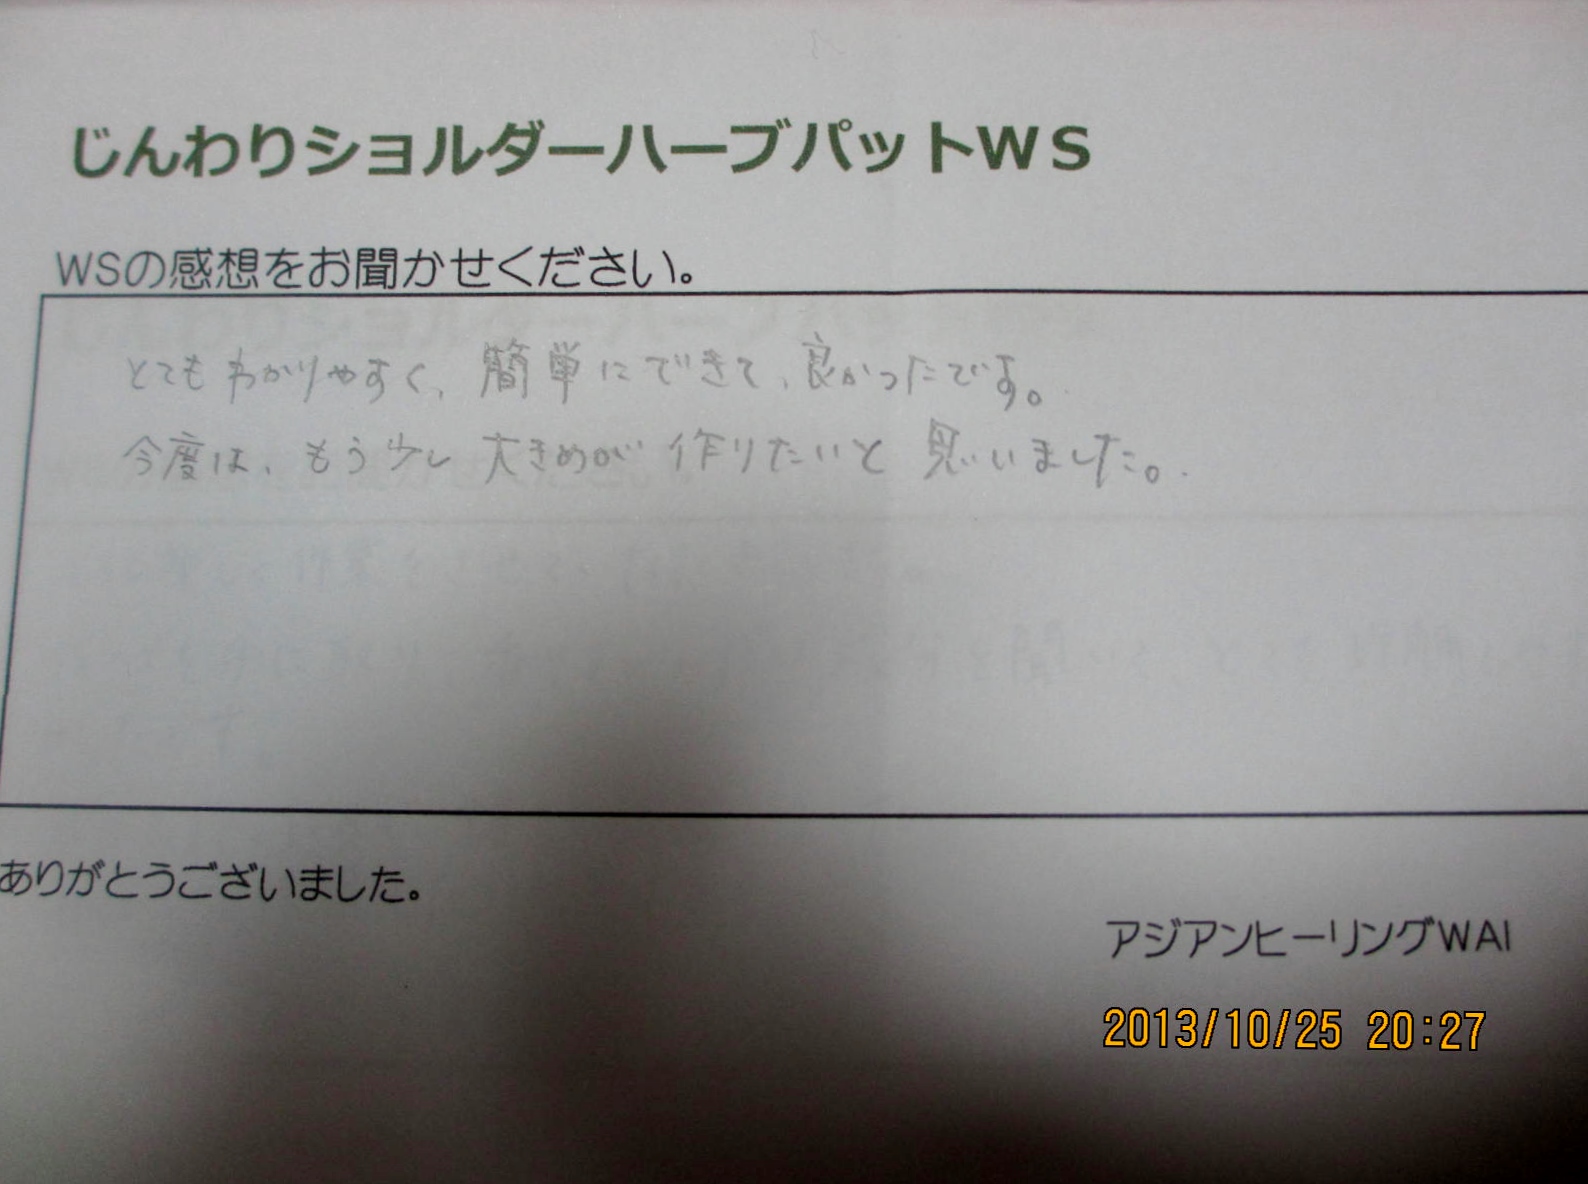 じんわりショルダーハーブパットWS
WSの感想をお聞かせください。
とてもわかりやすく、簡単にできて、良かったです。
今度は、もう少し大きめが作りたいと思いました。
ありがとうございました。
アジアンヒーリングWAI
2013/10/25 20:27